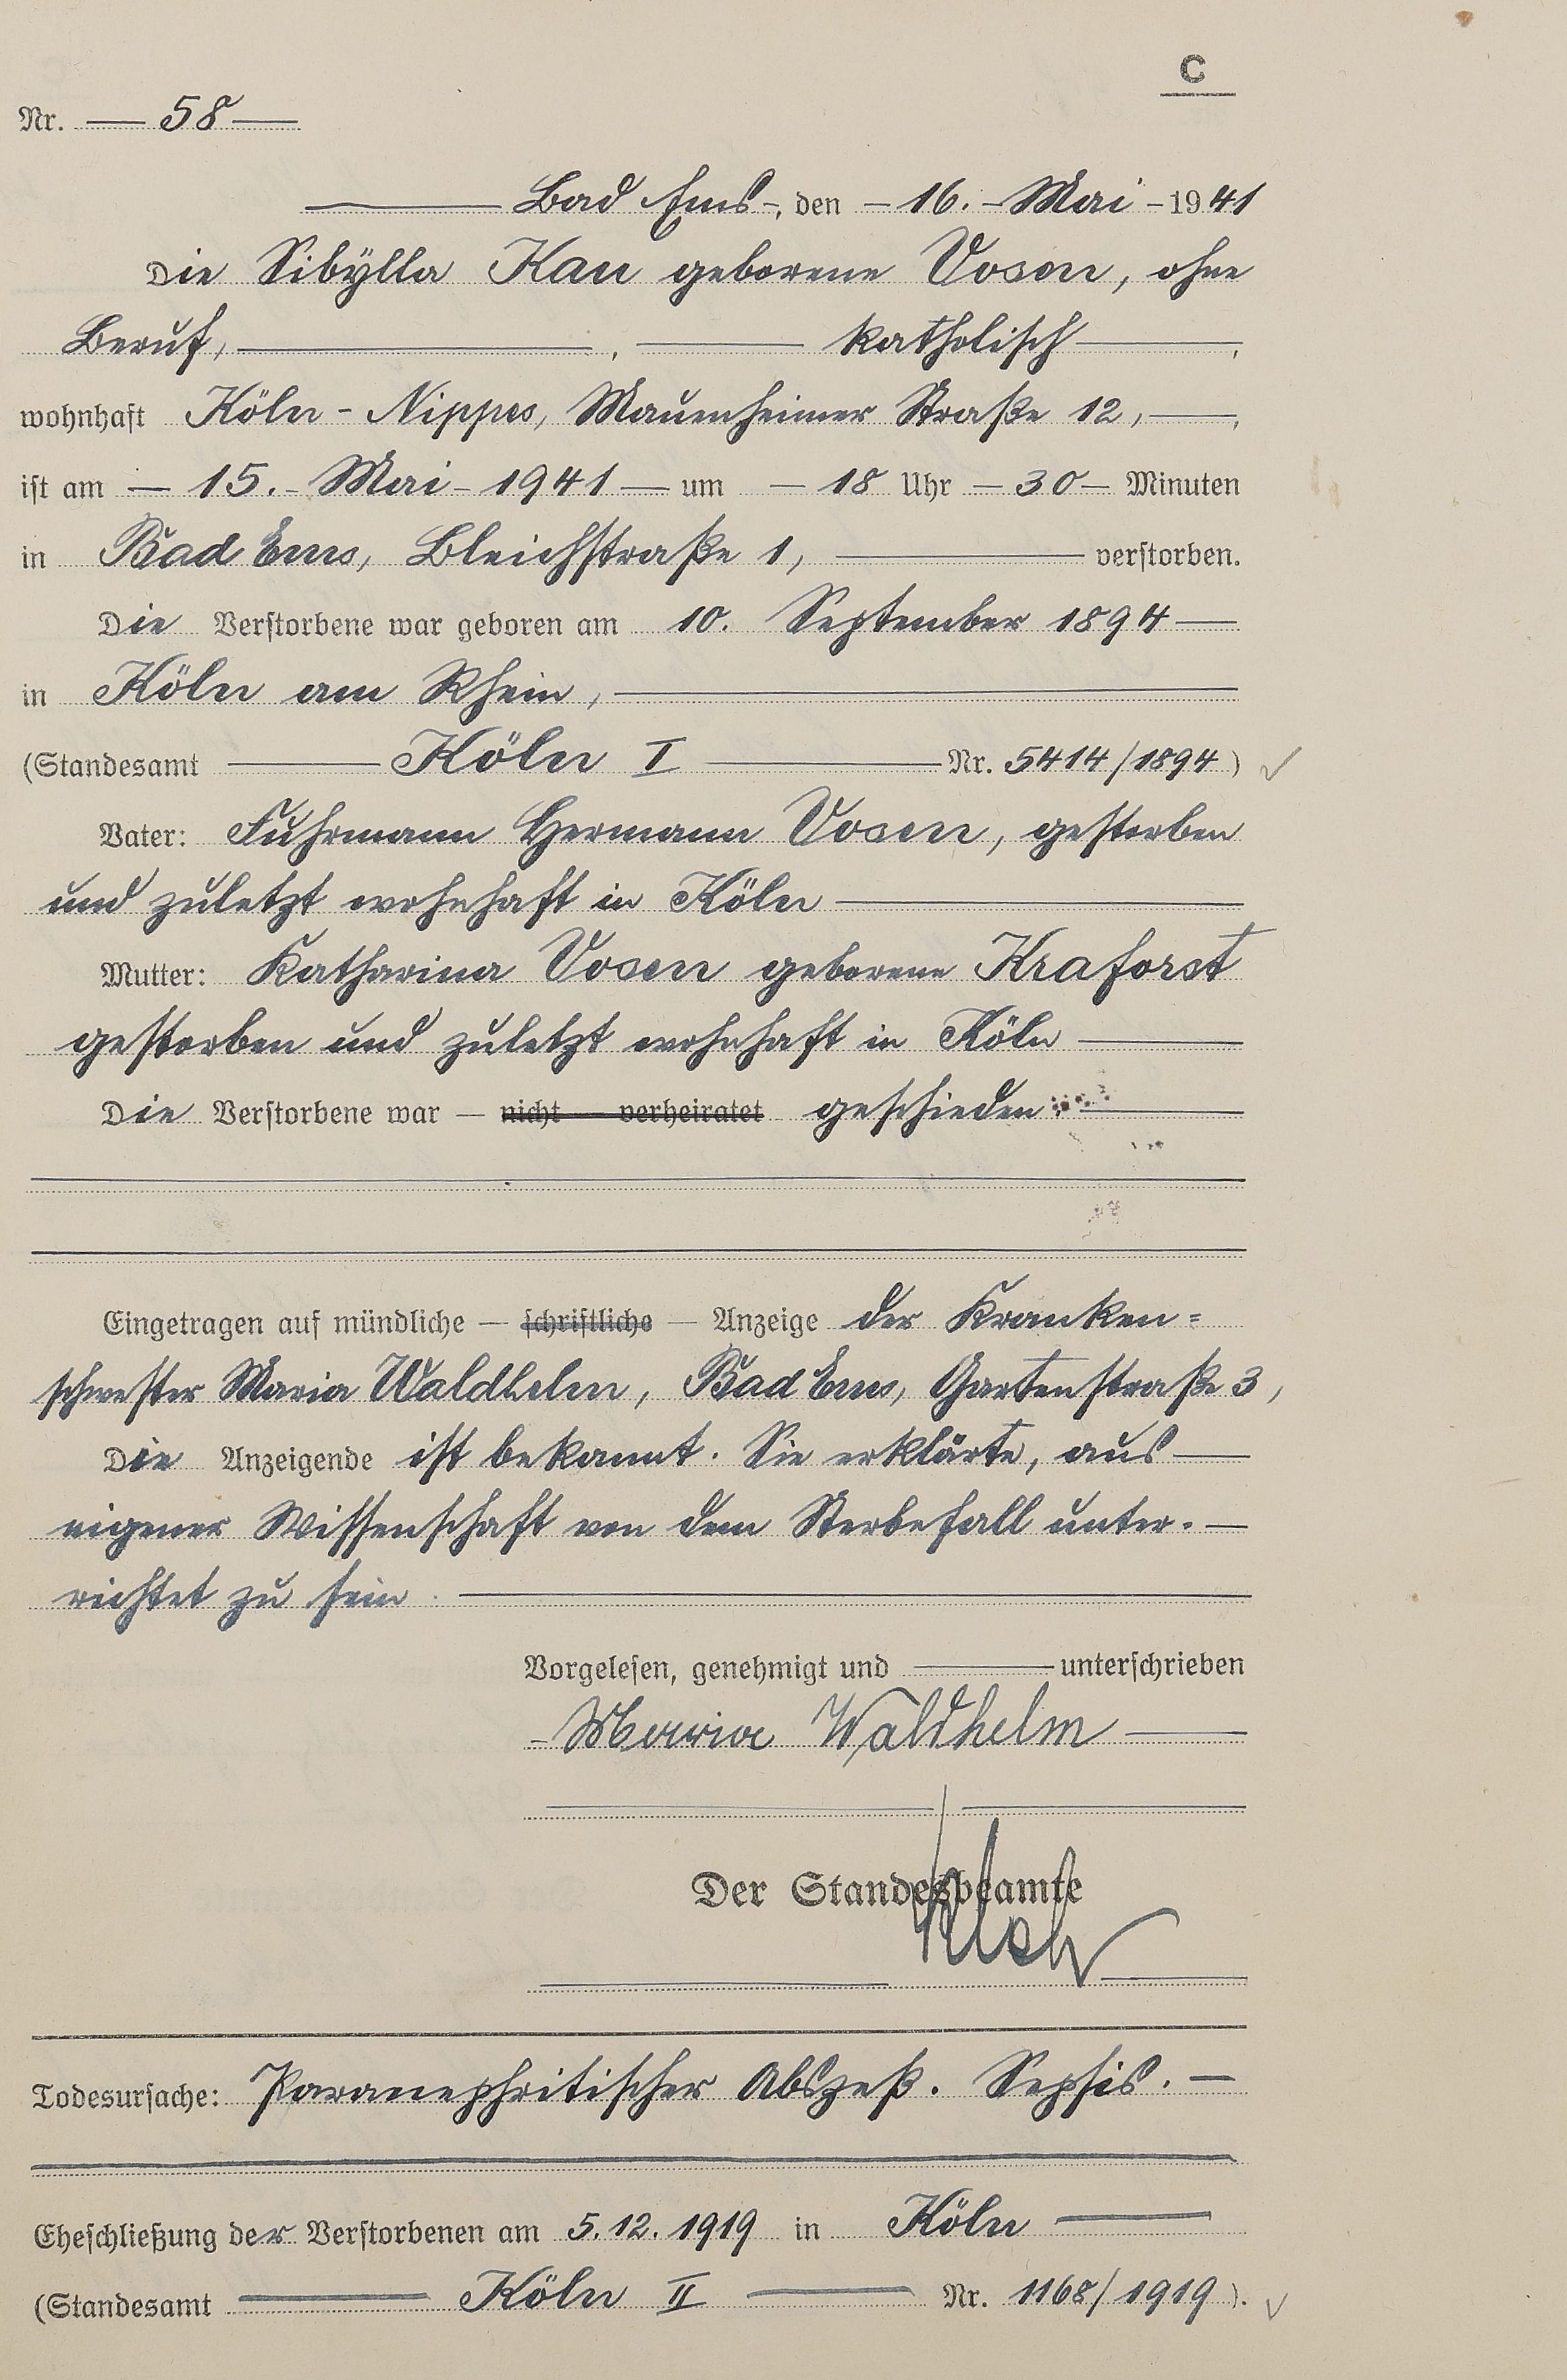 C
Nr. — 58 —
— Bad Ems -, den - 16. - Mai - 1941
Die Sibÿlla Kau geborene Vosen, ohne
Beruf, — , — katholisch — ,
wohnhaft Köln - Nippes, Mauenheimer Straße 12, — ,
ist am — 15. - Mai - 1941 — um — 18 Uhr — 30 — Minuten
in Bad Ems, Bleichstraße 1, — verstorben.
Die Verstorbene war geboren am 10. September 1894 —
in Köln am Rhein, —
(Standesamt — Köln I — Nr. 5414/1894)
Vater: Fuhrmann Hermann Vosen, gestorben
und zuletzt wohnhaft in Köln —
Mutter: Katharina Vosen geborene Kraforst
gestorben und zuletzt wohnhaft in Köln —
Die Verstorbene war — nicht — verheiratet geschieden. —
Eingetragen auf mündliche — schriftliche — Anzeige der Kranken=
schwester Maria Waldhelm, Bad Ems, Gartenstraße 3,
Die Anzeigende ist bekannt. Sie erklärte, aus —
eigener Wissenschaft von dem Sterbefall unter. —
richtet zu sein. —
Vorgelesen, genehmigt und — unterschrieben
- Maria Waldhelm —
Der Standesbeamte
Todesursache: Paranephritischer Abszeß. Sepsis. —
Eheschließung der Verstorbenen am 5.12.1919 in Köln —
(Standesamt — Köln II — Nr. 1168/1919).